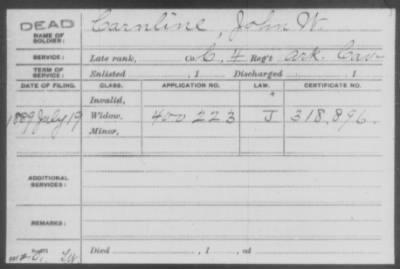 DEAD Carnline, John W.
NAME OF SOLDIER:
SERVICE: Late rank, Co. C, 4 Reg't Ark. Cav.
TERM OF SERVICE: Enlisted , 1 Discharged , 1
DATE OF FILING. CLASS. APPLICATION NO. LAW. CERTIFICATE NO.
Invalid,
1889 July 19 Widow, 400 223 J 318,896.
Minor,
ADDITIONAL SERVICES:
REMARKS:
Died , 1 , at